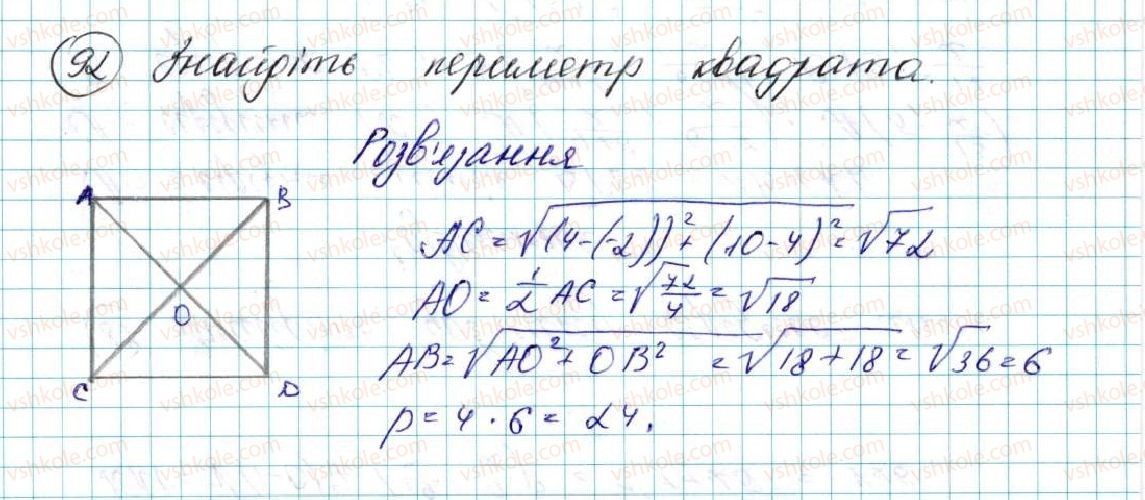 92 Знайдіть периметр квадрата.
Розв'язання
A B
O
C D
AC = √((4-(-2))² + (10-4)²) = √72
AO = 1/2 AC = √(72/4) = √18
AB = √(AO² + OB²) = √(18+18) = √36 = 6
p = 4 · 6 = 24.
vshkole.com